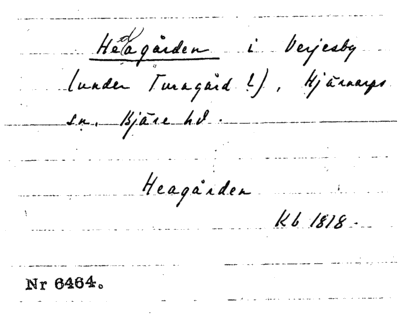 Hedagården i Verjesby
(under Turagård ?), Hjärnarps
sn, Bjäre hd.
Heagården
Kb 1818.
Nr 6464.